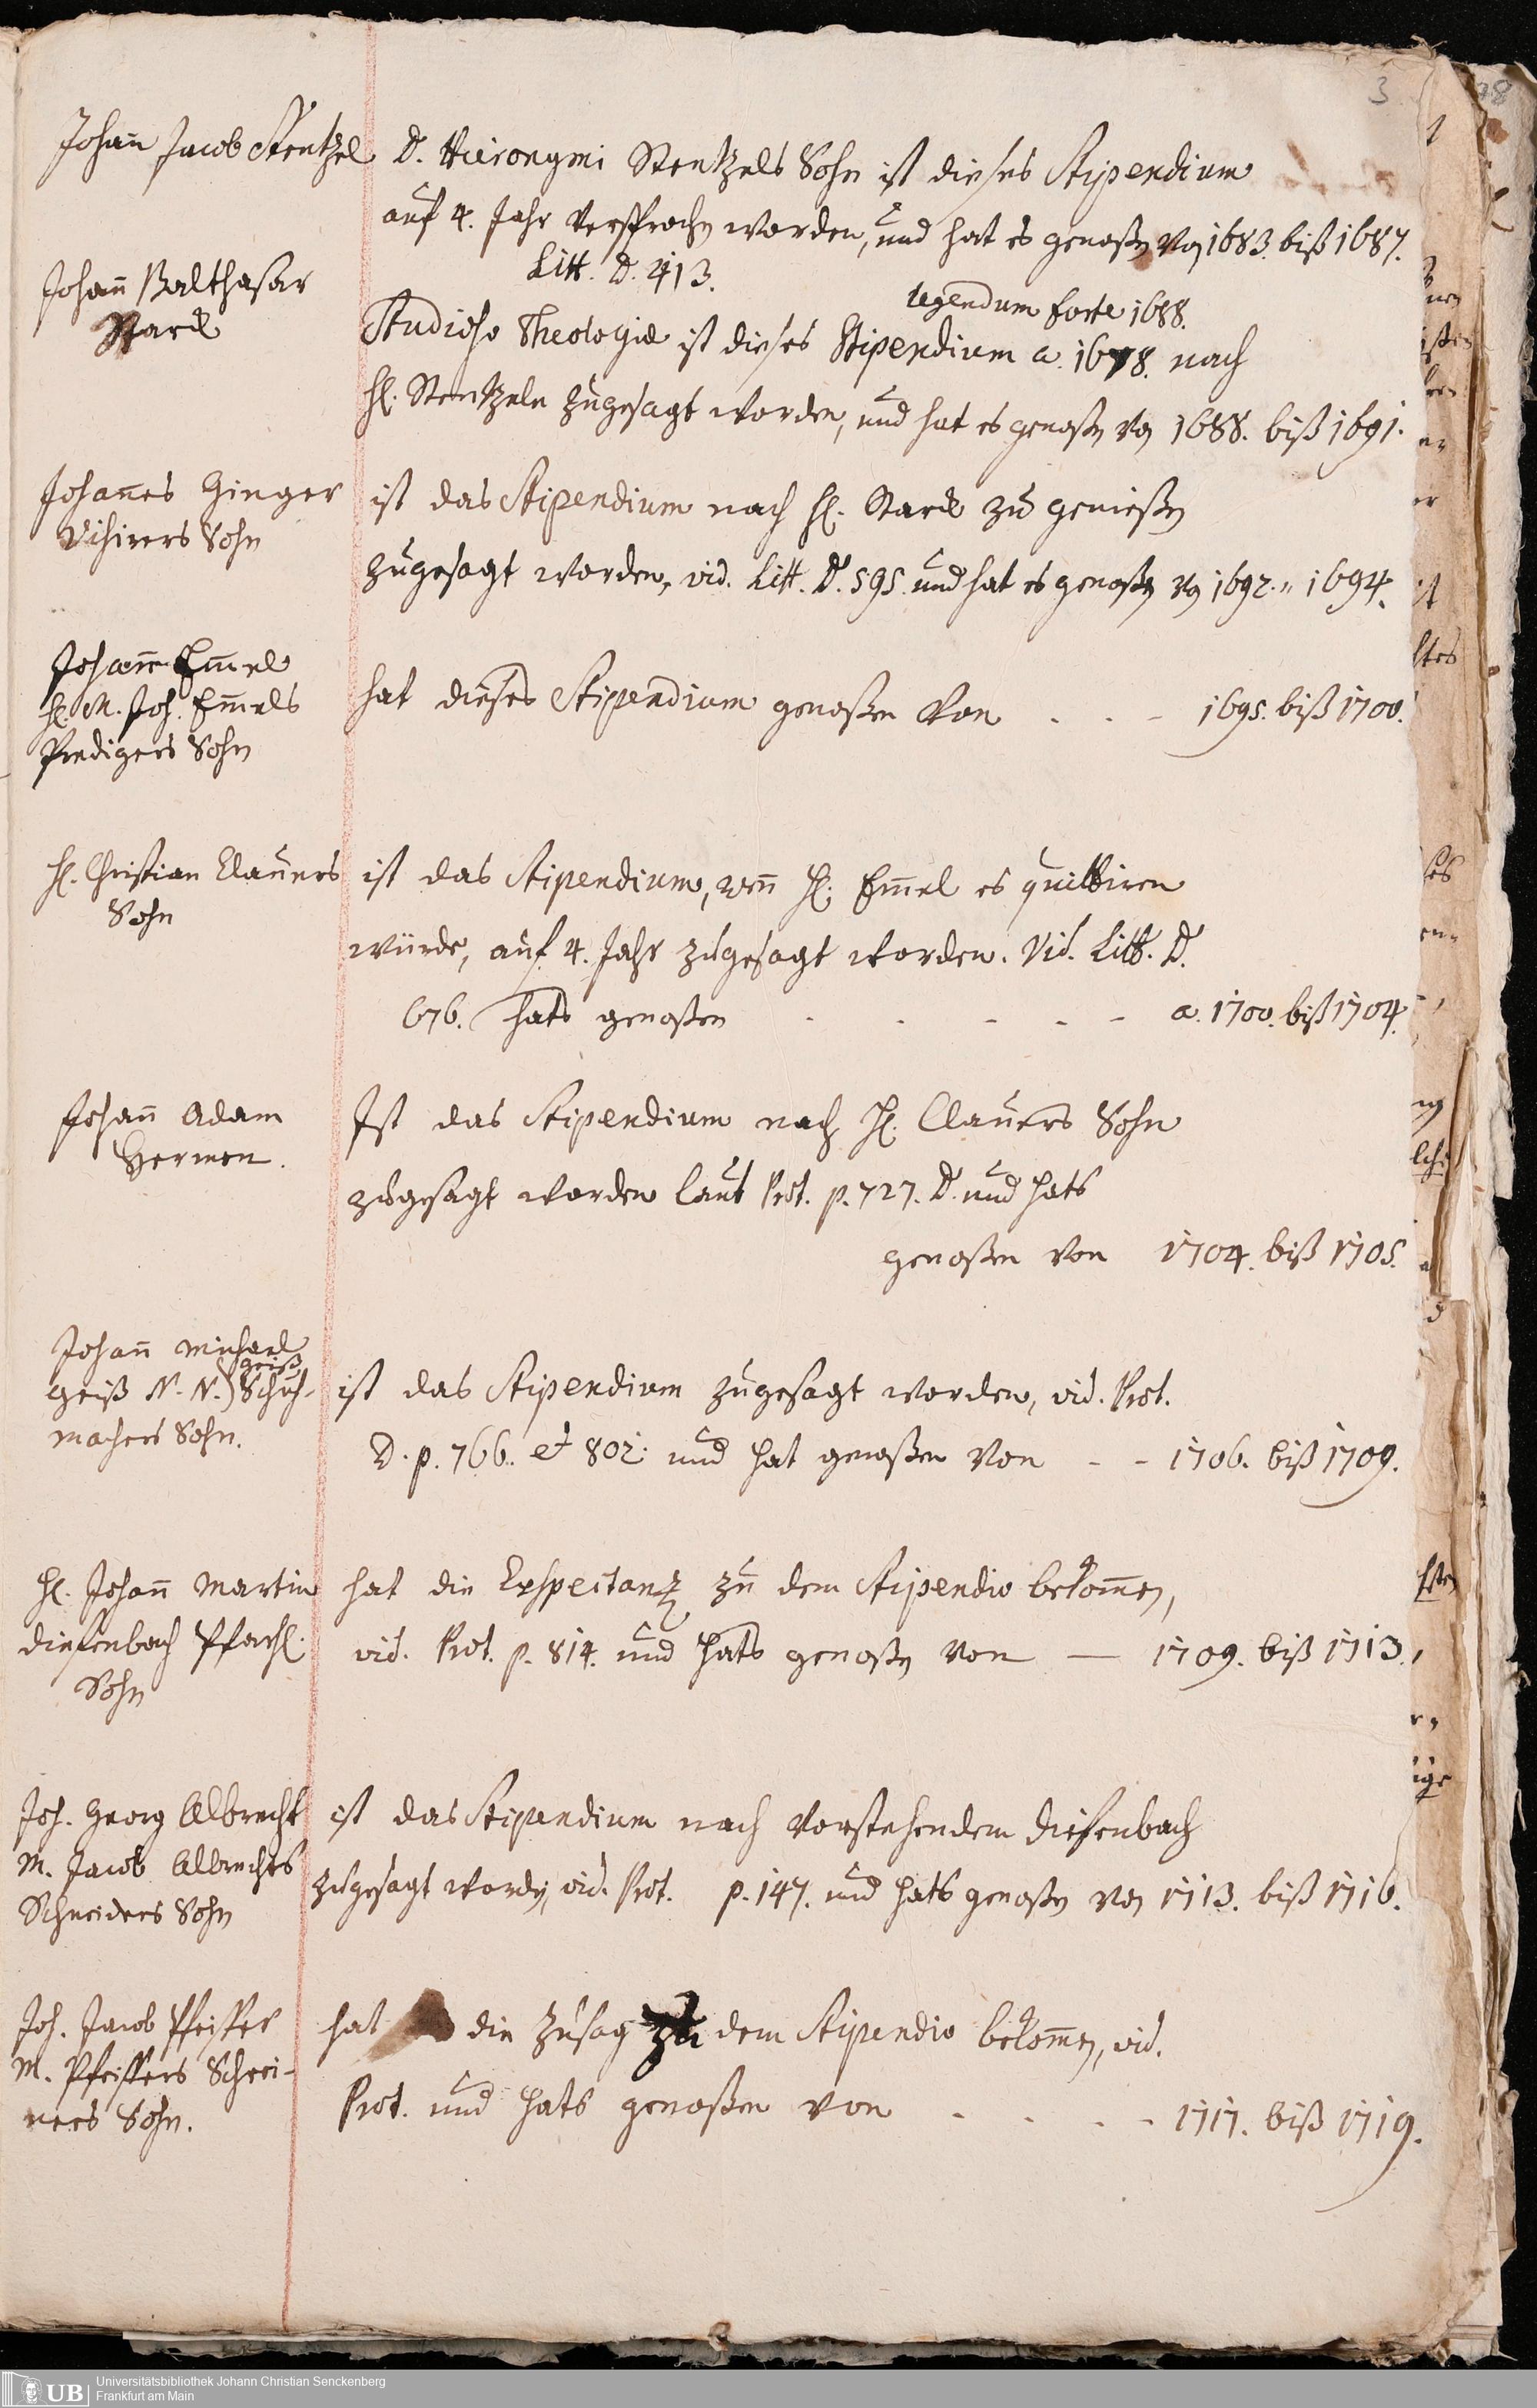 3
Johan̄ Jacob Stentzel
D. Hieronymi Stentzels Sohn ist dieses Stipendium
auf 4. Jahr versprochen worden, und hat es genoßen von 1683. biß 1687.
Litt. D. 413.
Johan̄ Balthasar
Starck
legendum forte 1688.
Studioso Theologiæ ist dieses Stipendium a. 1678. nach
H. Stentzeln zugesagt worden, und hat es genoßen von 1688. biß 1691.
Johan̄es Ginger
Visirers Sohn
ist das Stipendium nach H. Starck zu genießen
zugesagt worden, vid. Litt. D. 595. und hat es genoßen von 1692. " 1694.
Johan̄ Em̄el
H. M. Joh. Em̄els
Predigers Sohn
hat dieses Stipendium genoßen von . . - 1695. biß 1700.
H. Christian Clauers
Sohn
ist das Stipendium, wen̄ H. Em̄el es quittiren
würde, auf 4. Jahr zugesagt worden. Vid. Litt. D.
676. hats genoßen - - - - - a. 1700. biß 1704.
Johan̄ Adam
Hermen.
Ist das Stipendium nach H. Clauers Sohn
zugesagt worden laut Prot. p. 727. D. und hats
genoßen von 1704. biß 1705.
Johan̄ Michael
geiß
Geiß N. N.) Schuh-
machers Sohn.
ist das Stipendium zugesagt worden, vid. Prot.
D. p. 766. et 802. und hat genoßen von - - 1706. biß 1709.
H. Johan̄ Martin
Diefenbach Pfarh.
Sohn
hat die Exspectantz zu dem Stipendio bekom̄en,
vid. Prot. p. 814. und hats genoßen von — 1709. biß 1713.
Joh. Georg Albrecht
M. Jacob Albrechts
Schneiders Sohn
ist das Stipendium nach vorstehendem Diefenbach
zugesagt worden, vid. Prot. p. 147. und hats genoßen von 1713. biß 1716.
Joh. Jacob Pfeiffer
M. Pfeiffers Schrei-
ners Sohn.
hat die Zusag zu dem Stipendio bekom̄en, vid.
Prot. und hats genoßen von - - - - 1717. biß 1719.
UB
Universitätsbibliothek Johann Christian Senckenberg
Frankfurt am Main